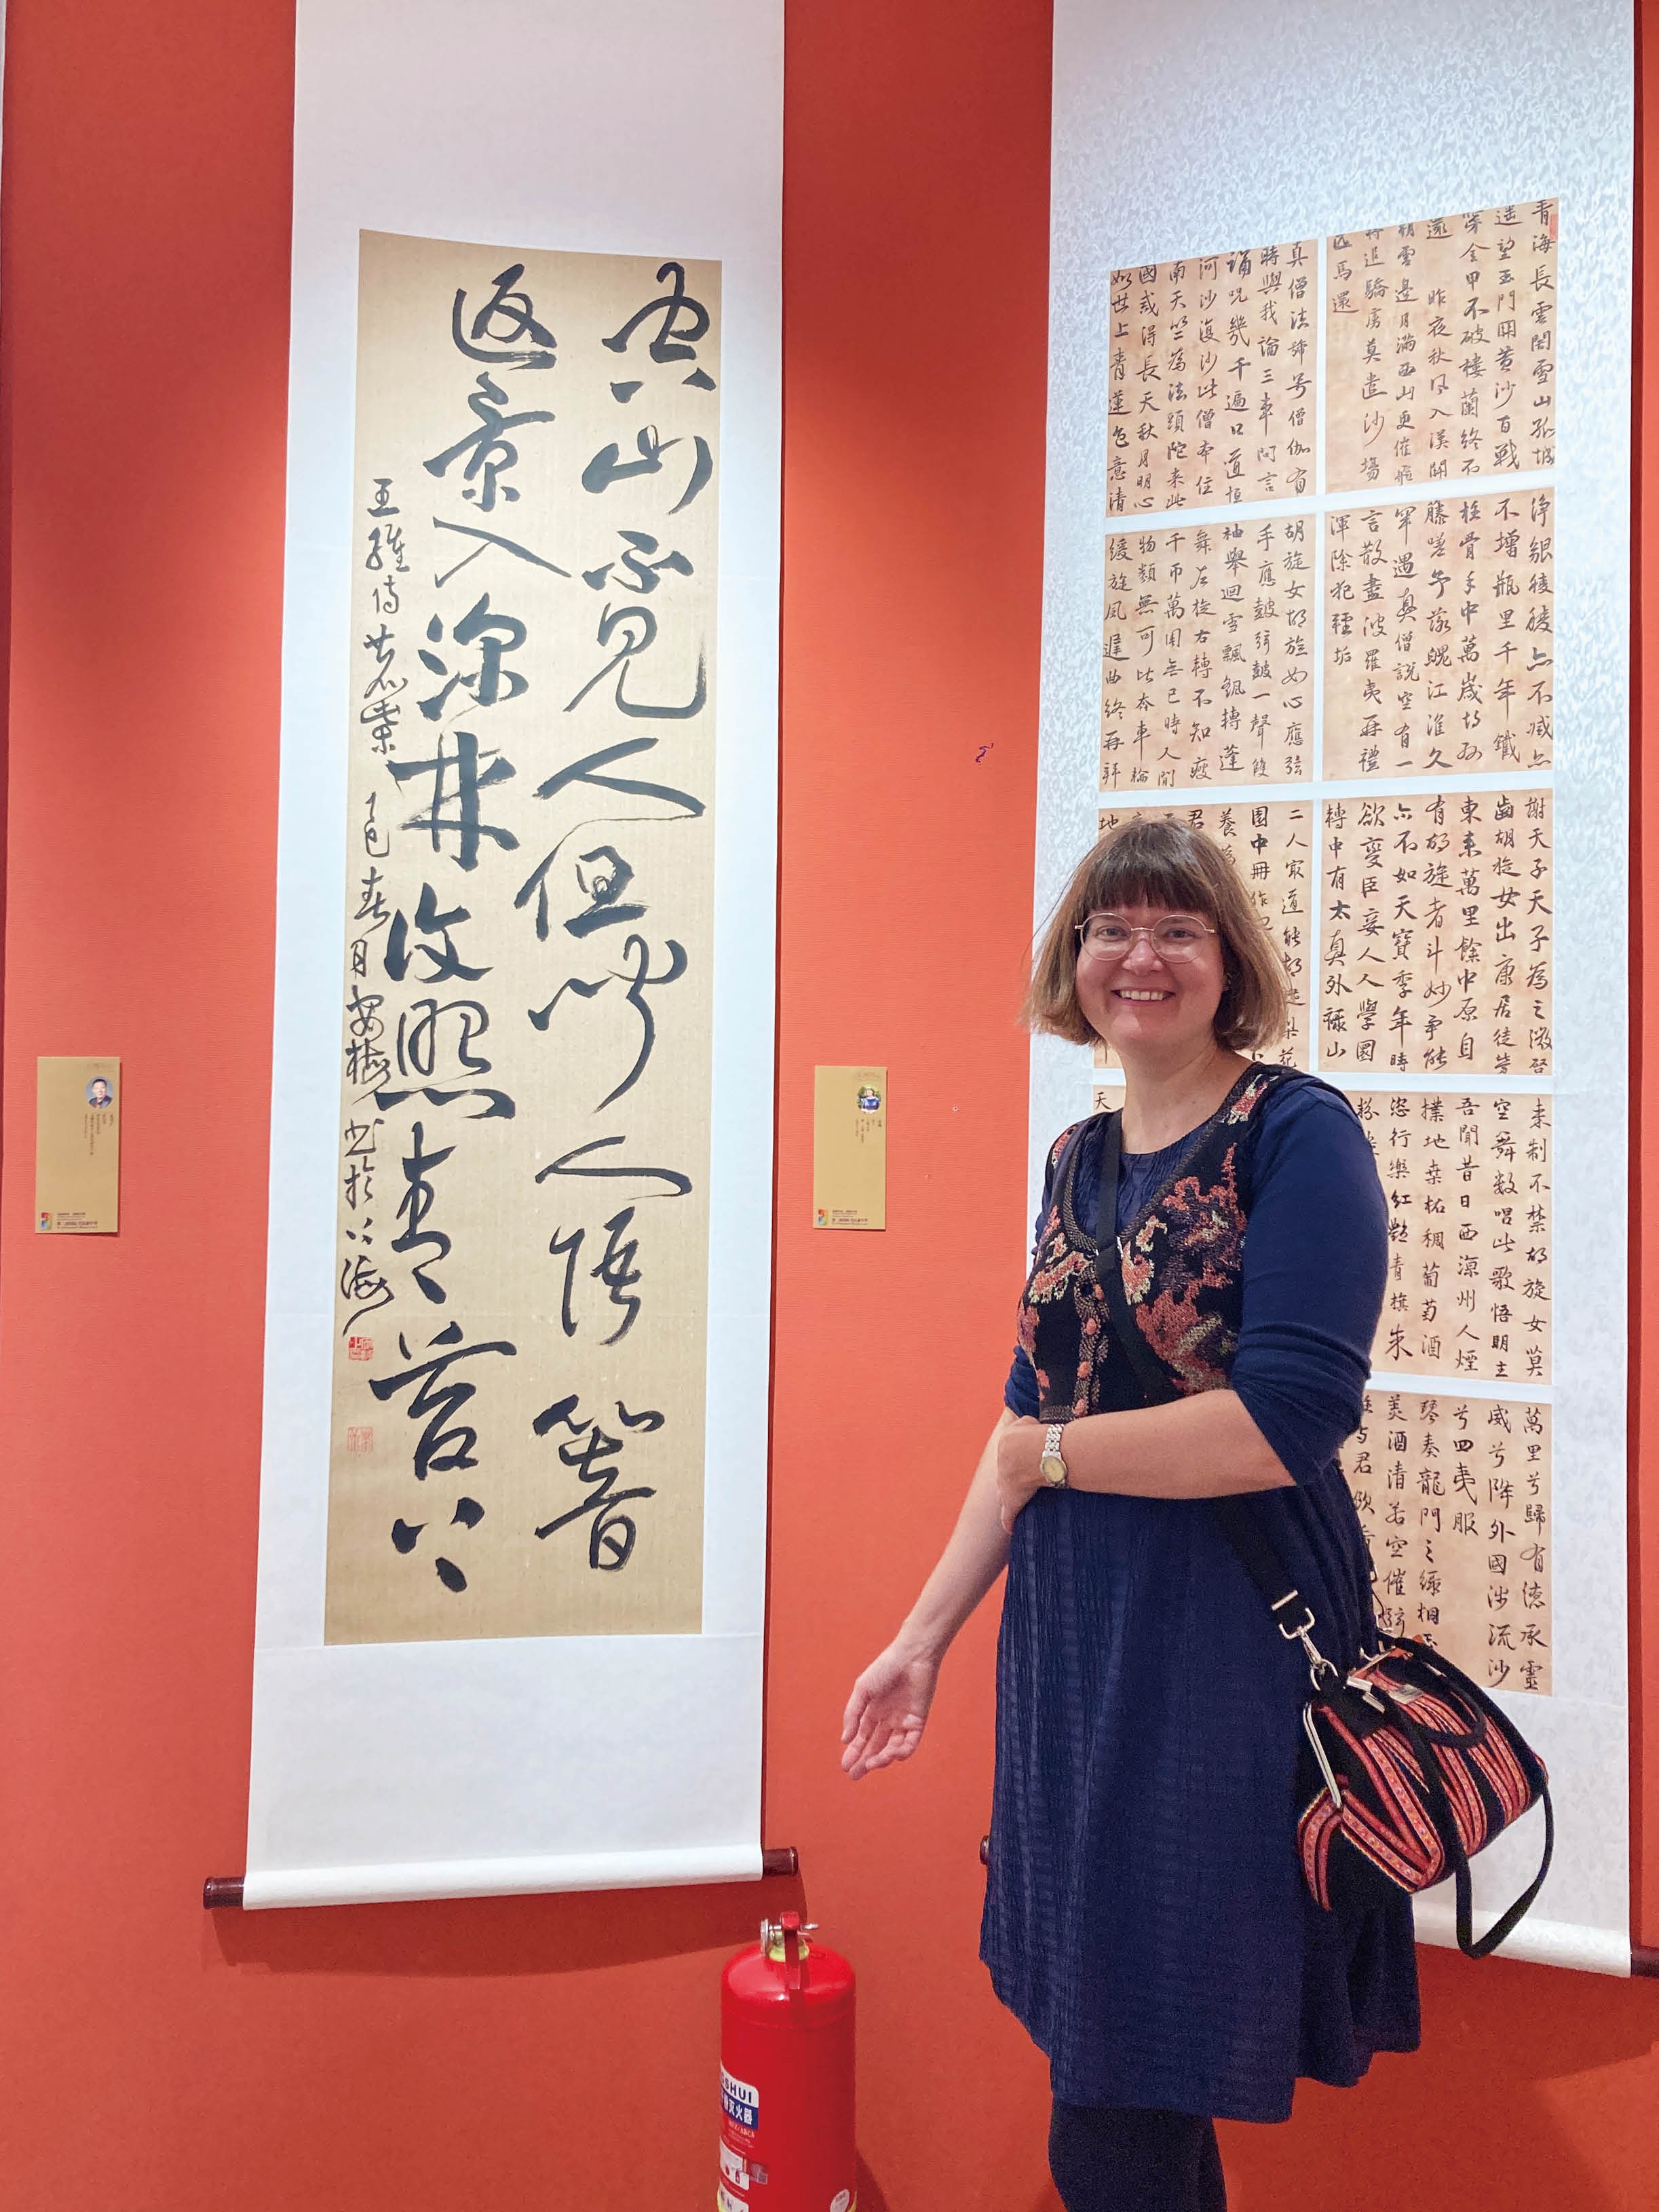 空山不見人但闻人语響
返景入深林復照青苔上
王維诗鹿柴 乙巳春月
书於上海
青海長雲闇雪山孤城
遥望玉門関黄沙百戰
穿金甲不破樓蘭終不
還 昨夜秋风入漢関
朔雲邊月满西山更催飛
将追驕虏莫遣沙場
匹馬還
真僧法號号僧伽有
時與我論三車问言
誦咒幾千遍口道恒
河沙復沙此僧本住
南天竺為法頭陀来此
國戒得長天秋月明心
如世上青蓮色意清
浄貌稜稜亦不减亦
不增瓶里千年鐵
柱骨手中萬歲胡孙
藤嗟予落魄江淮久
罕遇真僧説空有一
言散盡波羅夷再禮
渾除犯輕垢
胡旋女胡旋女心應弦
手應鼓弦鼓一聲雙
袖舉迴雪飄飖轉蓬
舞左旋右轉不知疲
千匝萬周無已時人間
物類無可比奔車輪
缓旋风遲曲終再拜
謝天子天子為之微启
齒胡旋女出康居徒勞
東来萬里餘中原自
有胡旋者斗妙争能
尔不如天寶季年時
欲變臣妾人人學圜
轉中有太真外禄山
二人最道能胡旋梨花
園中冊作妃
来制不禁胡旋女莫
空舞数唱此歌悟明主
吾聞昔日西凉州人煙
撲地桑柘稠葡萄酒
恣行樂红艷青旗朱
萬里兮歸有德承靈
威兮降外國涉流沙
兮四夷服
琴奏龍門之绿桐
美酒清若空催弦
SHUI
灭火器